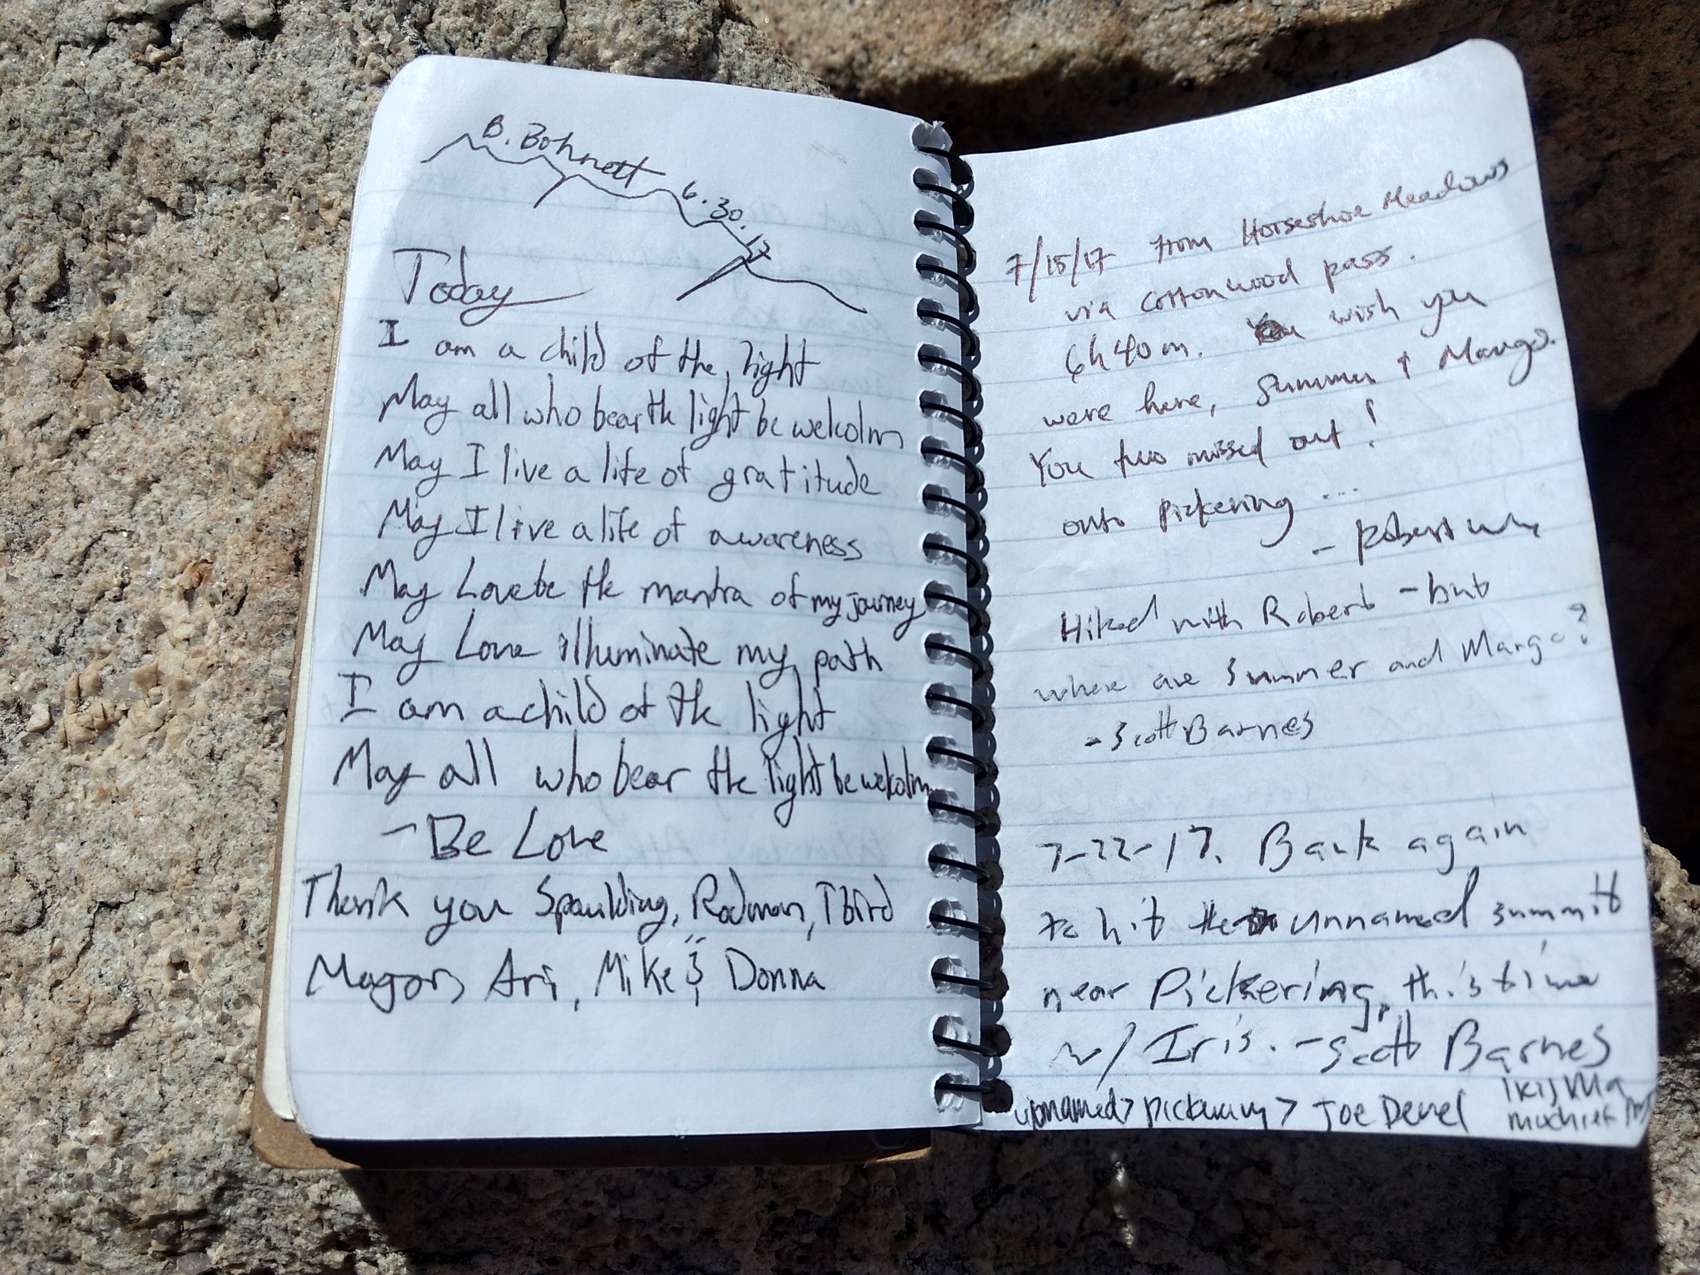 B. Bohnett 6.30.17
Today
I am a child of the light
May all who bear the light be wekolm
May I live a life of gratitude
May I live a life of awareness
May Love be the mantra of my journey
May Love illuminate my path
I am a child of the light
May all who bear the light be wekolm
- Be Love
Thank you Spaulding, Rodman, Tbird
Magors Ari, Mike & Donna
7/15/17 from Horseshoe Meadows
via cottonwood pass.
6h 40m. wish you
were here, Summer & Margo.
You two missed out!
onto Pickering ...
- Robert
Hiked with Robert - but
where are Summer and Margo?
- Scott Barnes
7-22-17. Back again
to hit the unnamed summit
near Pickering, this time
w/ Iris. - Scott Barnes
unnamed > pickering > Joe Devel